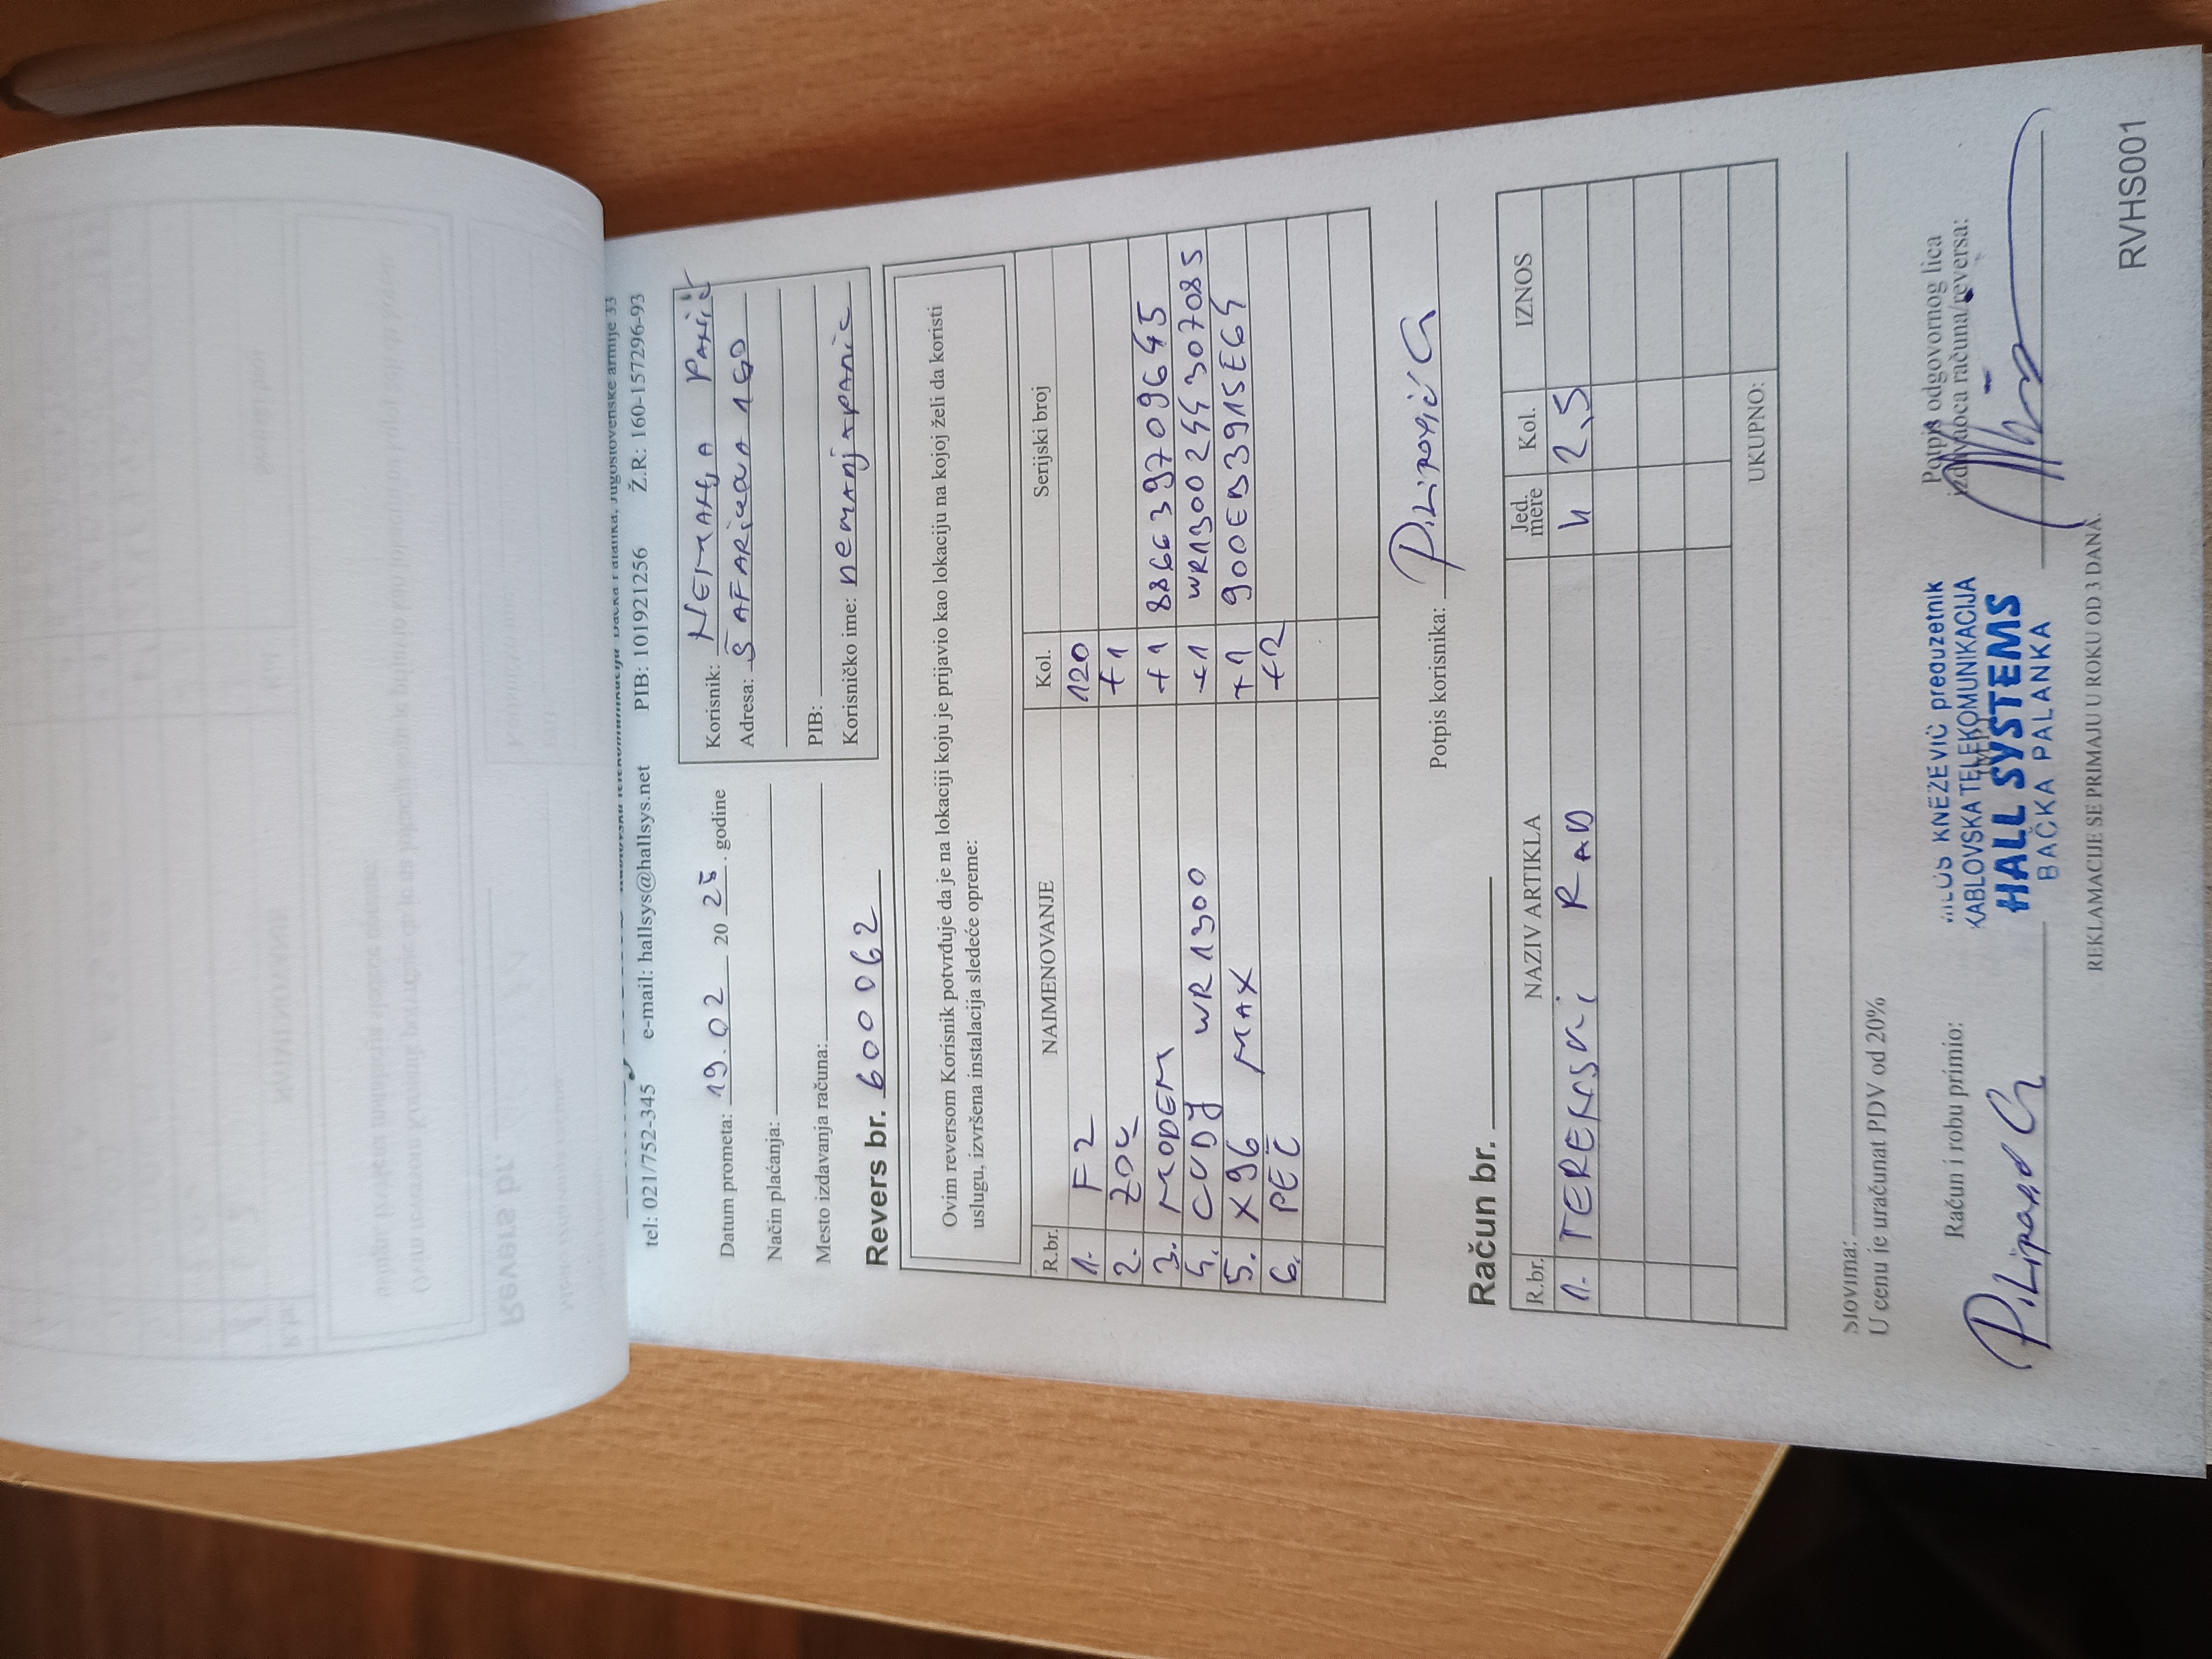 Jugoslovenske armije 33
tel: 021/752-345 e-mail: hallsys@hallsys.net PIB: 101921256 Ž.R: 160-157296-93
Datum prometa: 19.02 20 25. godine
Način plaćanja:
Mesto izdavanja računa:
Korisnik: NEMANJA PANIĆ
Adresa: ŠAFARIKOVA
PIB:
Korisničko ime: nemanjapanic
Revers br. 600062
Ovim reversom Korisnik potvrđuje da je na lokaciji koju je prijavio kao lokaciju na kojoj želi da koristi
uslugu, izvršena instalacija sledeće opreme:
R.br. NAIMENOVANJE Kol. Serijski broj
1. F2 120
2. ZOK +1
3. MODEM +1 886639709645
4. CUDY WR1300 +1 WR1300244307085
5. X96 MAX +1 900EB3915E64
6. PEČ +2
Potpis korisnika: Pilipović G
Račun br.
R.br. NAZIV ARTIKLA Jed. mere Kol. IZNOS
1. TERENSKI RAD h 2,5
UKUPNO:
Slovima:
U cenu je uračunat PDV od 20%
Račun i robu primio:
Potpis odgovornog lica
izdavaoca računa/reversa:
MILOŠ KNEŽEVIĆ preduzetnik
KABLOVSKA TELEKOMUNIKACIJA
HALL SYSTEMS
BAČKA PALANKA
REKLAMACIJE SE PRIMAJU U ROKU OD 3 DANA.
RVHS001